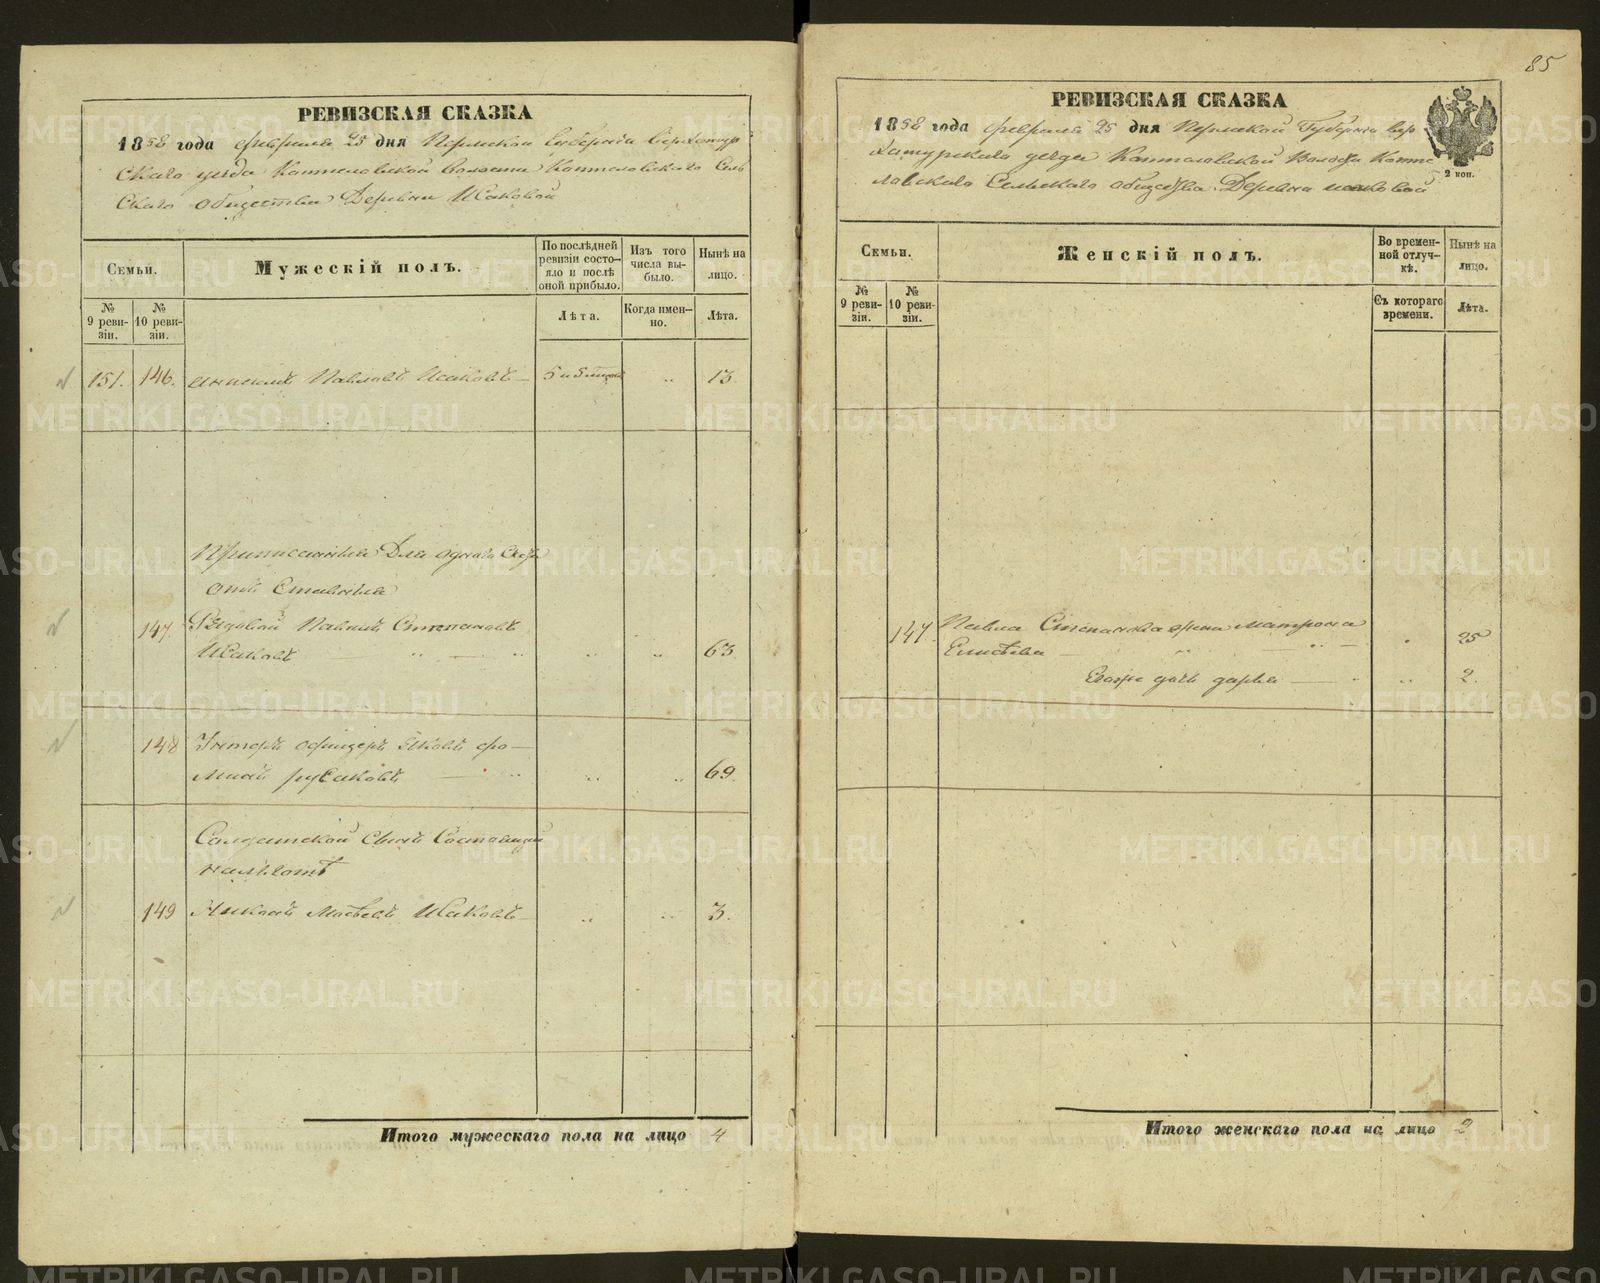 РЕВИЗСКАЯ СКАЗКА
1858 года февраля 25 дня Пермской Губернии Верхотур
скаго уезда Коптеловской Волости Коптеловскаго Сель
скаго общества Деревни Исаковой
Семьи.
Мужескій полъ.
По послѣдней ревизіи состояло и послѣ оной прибыло.
Изъ того числа выбыло.
Нынѣ на лицо.
№ 9 ревизіи.
№ 10 ревизіи.
Лѣта.
Когда именно.
Лѣта.
151. 146. Павловъ Исаковъ 13
Приписанныя Для одного
147. Рядовой Павелъ Степановъ
Исаковъ 63
148 Унтеръ офицеръ Яковъ Фо
мичь Русаковъ 69.
Солдатской сынъ Состоящій
149 Матвеевъ Исаковъ 3.
Итого мужескаго пола на лицо 4
85
РЕВИЗСКАЯ СКАЗКА
1858 года февраля 25 дня Пермской Губерніи Вер
хатурскаго уезда Коптеловской Волости Копте
ловскаго Сельскаго общества Деревни Исаковой
2 коп.
Семьи.
Женскій полъ.
Во временной отлучкѣ.
Нынѣ на лицо.
№ 9 ревизіи.
№ 10 ревизіи.
Съ котораго времени.
Лѣта.
147. Павла Степанова жена Матрона
Елисѣева 25
Егоже дочь Дарья 2.
Итого женскаго пола на лицо 2
METRIKI.GASO-URAL.RU